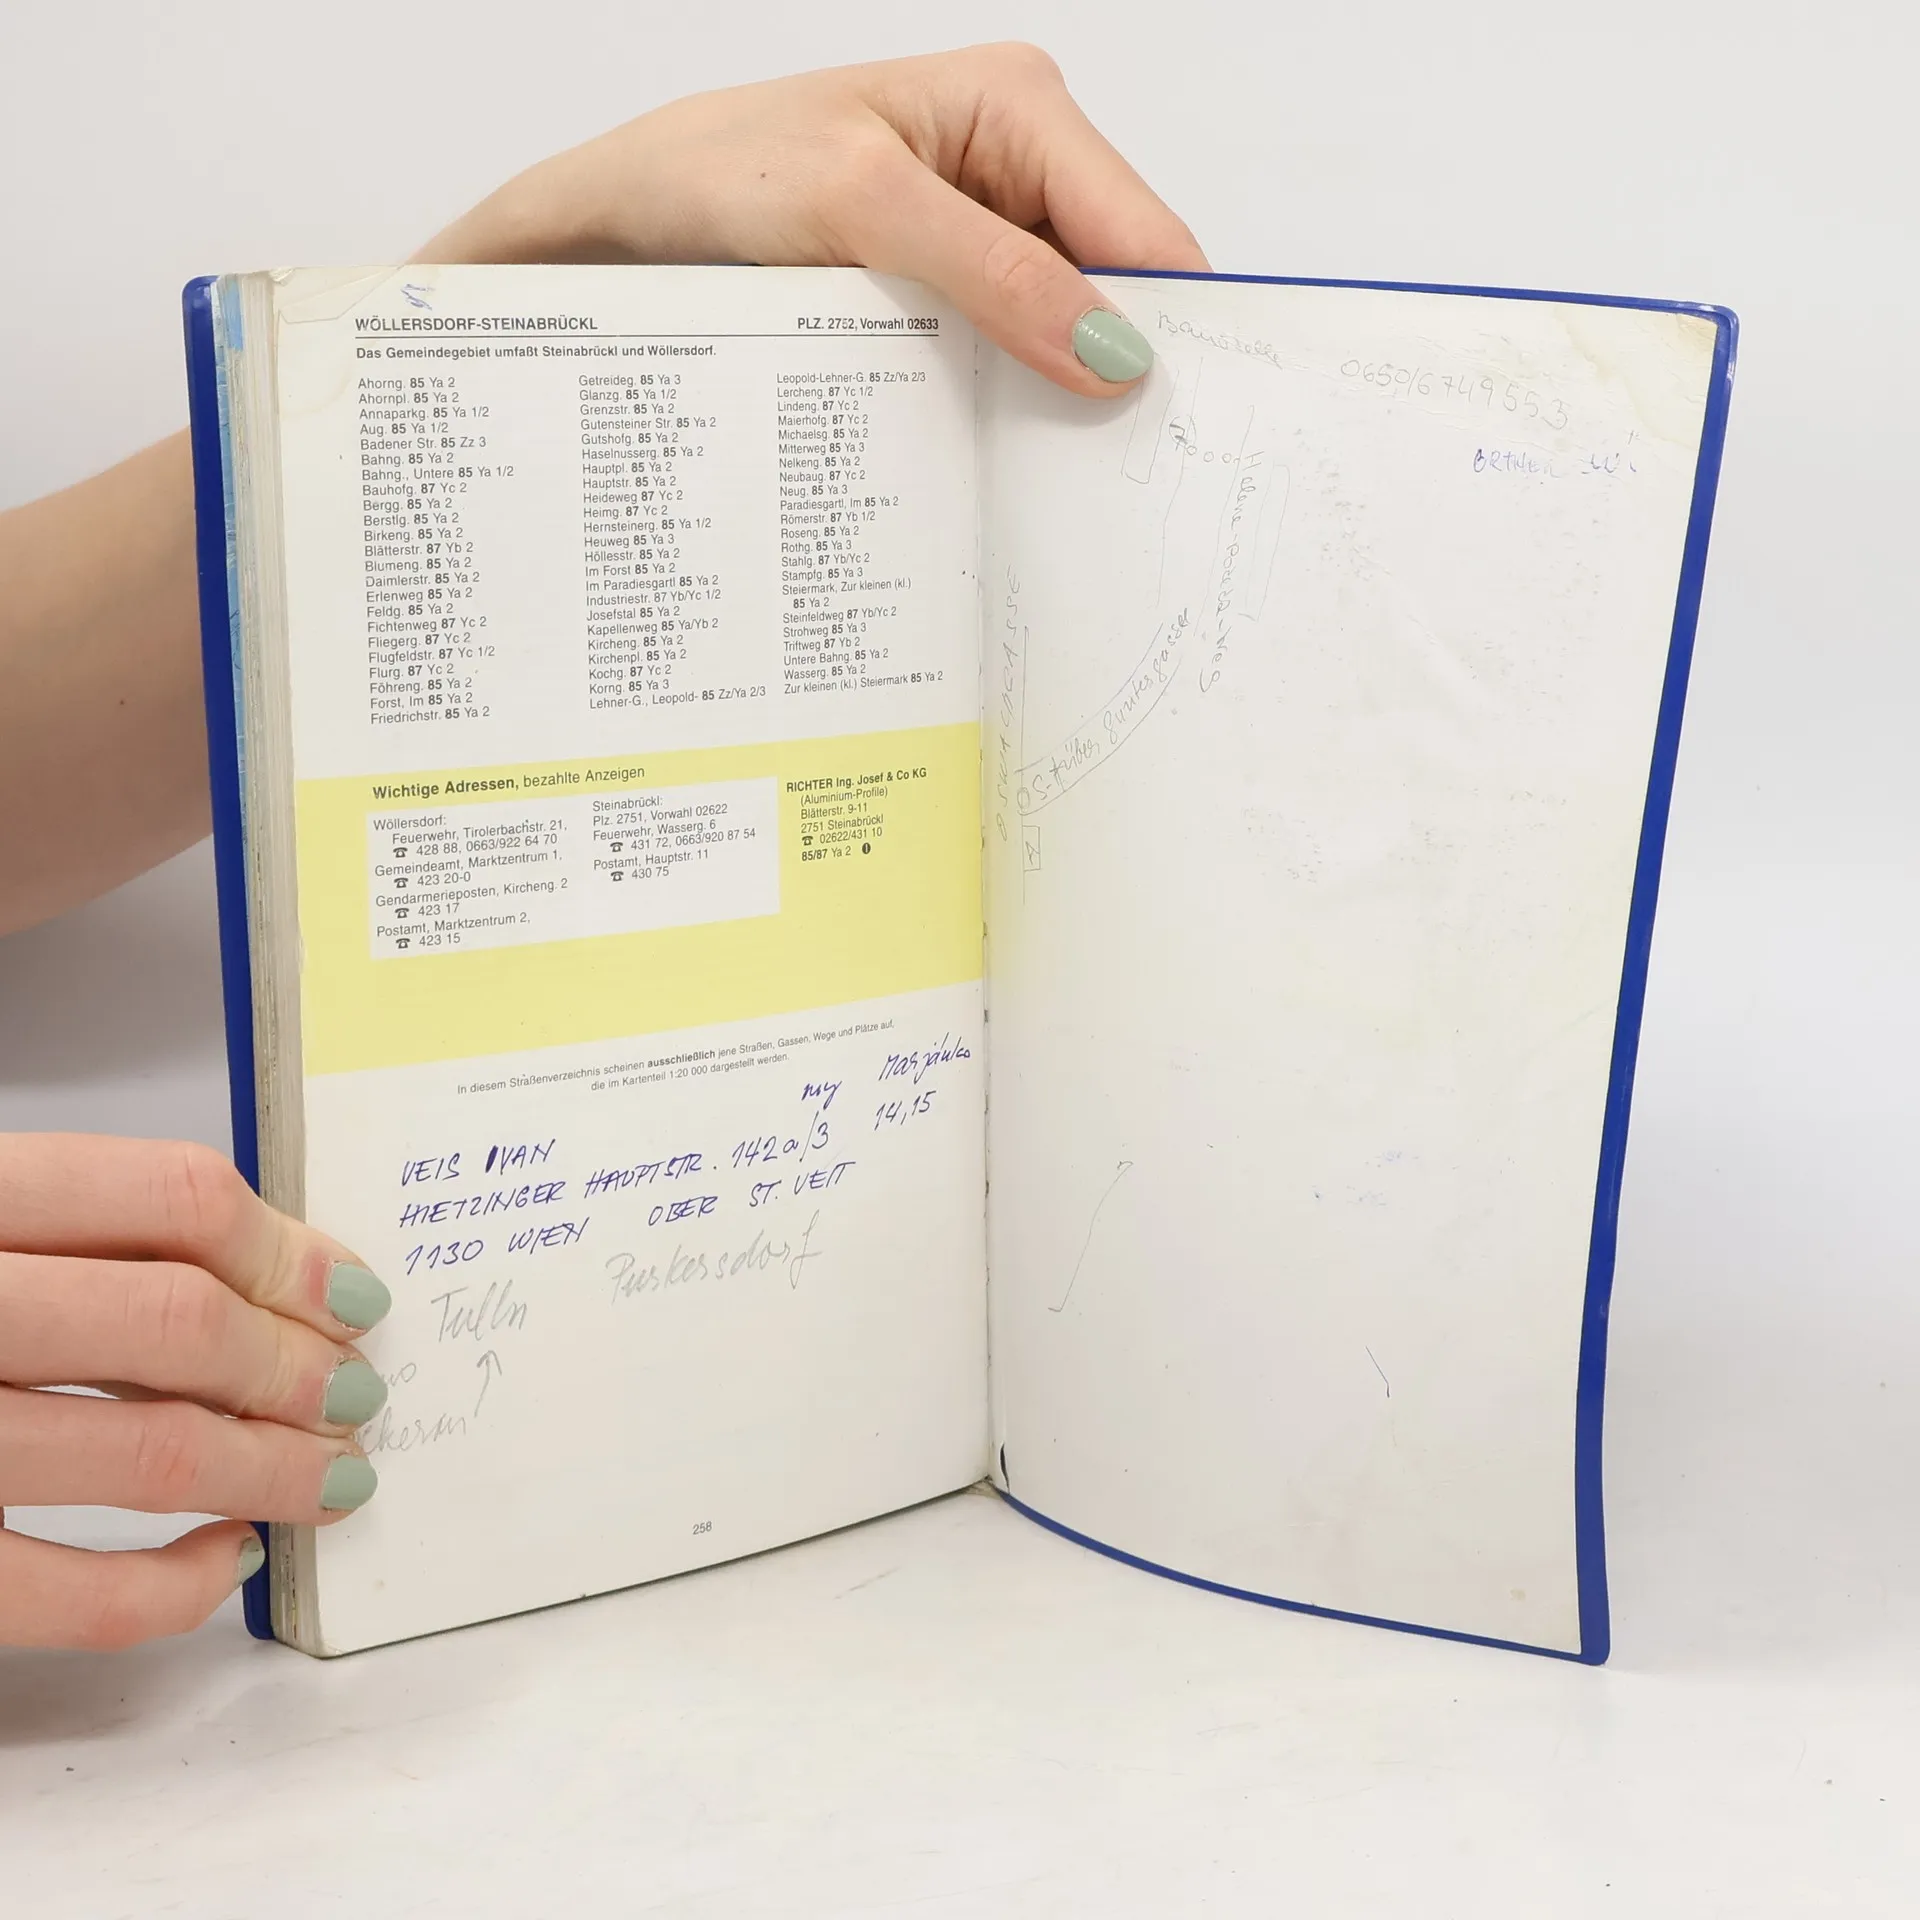 WÖLLERSDORF-STEINABRÜCKL PLZ. 2752, Vorwahl 02633
Das Gemeindegebiet umfaßt Steinabrückl und Wöllersdorf.
Ahorng. 85 Ya 2
Ahornpl. 85 Ya 2
Annaparkg. 85 Ya 1/2
Aug. 85 Ya 1/2
Badener Str. 85 Zz 3
Bahng. 85 Ya 2
Bahng., Untere 85 Ya 1/2
Bauhofg. 87 Yc 2
Bergg. 85 Ya 2
Berstlg. 85 Ya 2
Birkeng. 85 Ya 2
Blätterstr. 87 Yb 2
Blumeng. 85 Ya 2
Daimlerstr. 85 Ya 2
Erlenweg 85 Ya 2
Feldg. 85 Ya 2
Fichtenweg 87 Yc 2
Fliegerg. 87 Yc 2
Flugfeldstr. 87 Yc 1/2
Flurg. 87 Yc 2
Föhreng. 85 Ya 2
Forst, Im 85 Ya 2
Friedrichstr. 85 Ya 2
Getreideg. 85 Ya 3
Glanzg. 85 Ya 1/2
Grenzstr. 85 Ya 2
Gutensteiner Str. 85 Ya 2
Gutshofg. 85 Ya 2
Haselnusserg. 85 Ya 2
Hauptpl. 85 Ya 2
Hauptstr. 85 Ya 2
Heideweg 87 Yc 2
Heimg. 87 Yc 2
Hernsteinerg. 85 Ya 1/2
Heuweg 85 Ya 3
Höllesstr. 85 Ya 2
Im Forst 85 Ya 2
Im Paradiesgartl 85 Ya 2
Industriestr. 87 Yb/Yc 1/2
Josefstal 85 Ya 2
Kapellenweg 85 Ya/Yb 2
Kircheng. 85 Ya 2
Kirchenpl. 85 Ya 2
Kochg. 87 Yc 2
Korng. 85 Ya 3
Lehner-G., Leopold- 85 Zz/Ya 2/3
Leopold-Lehner-G. 85 Zz/Ya 2/3
Lercheng. 87 Yc 1/2
Lindeng. 87 Yc 2
Maierhofg. 87 Yc 2
Michaelsg. 85 Ya 2
Mitterweg 85 Ya 3
Nelkeng. 85 Ya 2
Neubaug. 87 Yc 2
Neug. 85 Ya 3
Paradiesgartl, Im 85 Ya 2
Römerstr. 87 Yb 1/2
Roseng. 85 Ya 2
Rothg. 85 Ya 3
Stahlg. 87 Yb/Yc 2
Stampfg. 85 Ya 3
Steiermark, Zur kleinen (kl.)
85 Ya 2
Steinfeldweg 87 Yb/Yc 2
Strohweg 85 Ya 3
Triftweg 87 Yb 2
Untere Bahng. 85 Ya 2
Wasserg. 85 Ya 2
Zur kleinen (kl.) Steiermark 85 Ya 2
Wichtige Adressen, bezahlte Anzeigen
Wöllersdorf:
Feuerwehr, Tirolerbachstr. 21,
☎ 428 88, 0663/922 64 70
Gemeindeamt, Marktzentrum 1,
☎ 423 20-0
Gendarmerieposten, Kircheng. 2
☎ 423 17
Postamt, Marktzentrum 2,
☎ 423 15
Steinabrückl:
Plz. 2751, Vorwahl 02622
Feuerwehr, Wasserg. 6
☎ 431 72, 0663/920 87 54
Postamt, Hauptstr. 11
☎ 430 75
RICHTER Ing. Josef & Co KG
(Aluminium-Profile)
Blätterstr. 9-11
2751 Steinabrückl
☎ 02622/431 10
85/87 Ya 2
In diesem Straßenverzeichnis scheinen ausschließlich jene Straßen, Gassen, Wege und Plätze auf,
die im Kartenteil 1:20 000 dargestellt werden.
my Marjánka
VEIS IVAN 14,15
HIETZINGER HAUPTSTR. 142a/3
1130 WIEN OBER ST. VEIT
Tulln Purkersdorf
258
Baustelle
0650/6749553